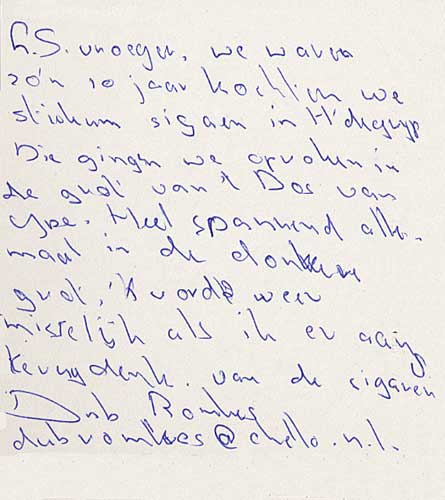 L.S. vroeger, we waren
zo'n 10 jaar kochten we
stiekum sigaren in H'degryp
Die gingen we oproken in
de grot van 't Bos van
Ype. Heel spannend alle-
maal in de donkere
grot, 'k word weer
misselijk als ik er aan
terugdenk. van de sigaren
Dub Romkes
dubromkes@chello.nl.